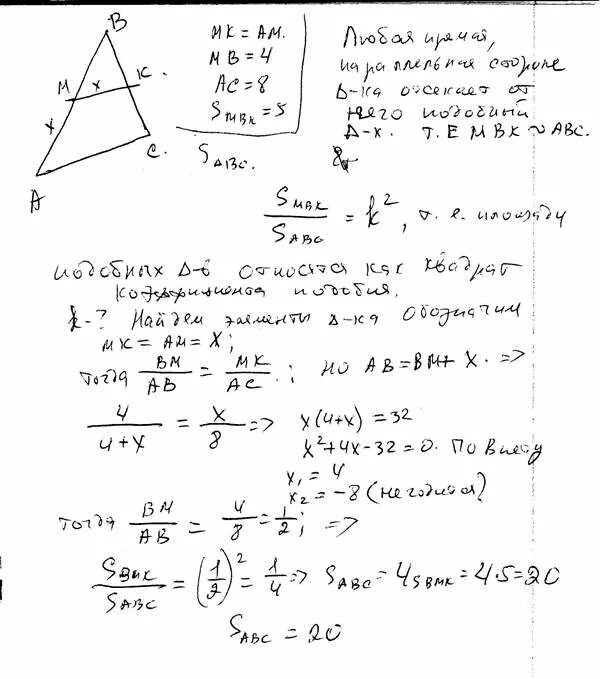 B
M
x
K
x
A
C
MK = AM.
MB = 4
AC = 8
S_MBK = 5
S_ABC.
Любая прямая,
параллельная стороне
Δ-ка отсекает от
него подобный
Δ-к. Т.Е MBK ~ ABC.
S_MBK / S_ABC = k², т. е. площади
подобных Δ-в относятся как квадрат
коэффициента подобия.
k-? Найдем элементы Δ-ка обозначим
MK = AM = X;
тогда BM/AB = MK/AC.; но AB = BM + X. =>
4/(4+x) = x/8 => x(4+x) = 32
x² + 4x - 32 = 0. По Виету
x₁ = 4
x₂ = -8 (не годится)
Тогда BM/AB = 4/8 = 1/2; =>
S_BMK / S_ABC = (1/2)² = 1/4 => S_ABC = 4S_BMK = 4·5 = 20
S_ABC = 20